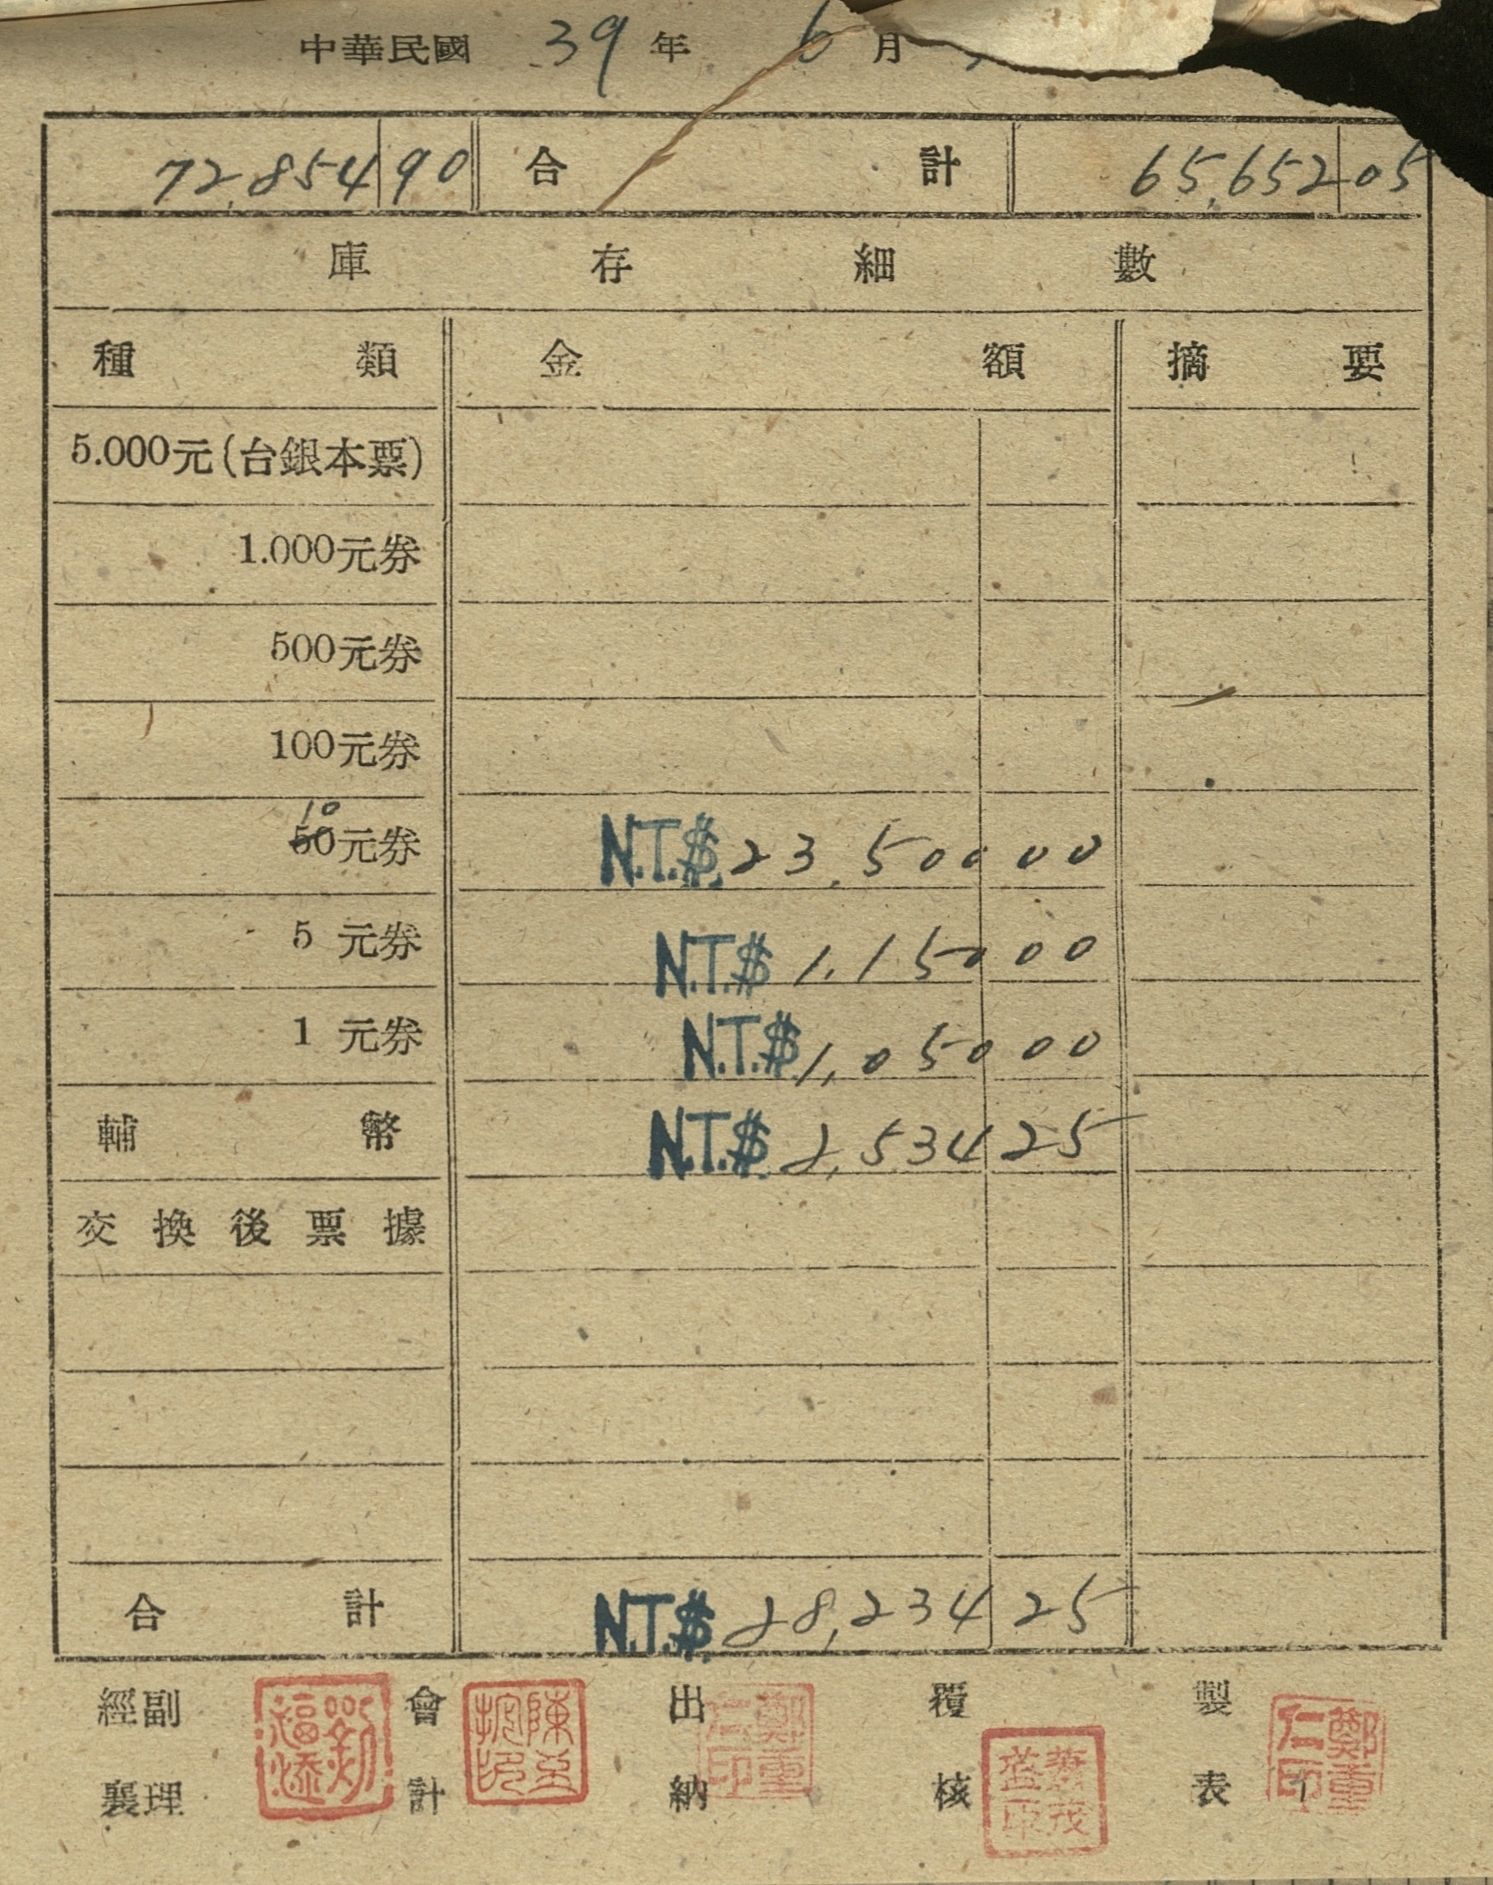 中華民國 39 年 6 月
72,854 90 合計 65,652 05
庫存細數
種類 金額 摘要
5.000元(台銀本票)
1.000元券
500元券
100元券
10
50元券 N.T.$ 23,500 00
5 元券 N.T.$ 1,150 00
1 元券 N.T.$ 1,050 00
輔幣 N.T.$ 2,534 25
交換後票據
合計 N.T.$ 28,234 25
經副 會 出 覆 製
襄理 計 納 核 表
劉福添
鄭重仁印
蕭茂益印
鄭重仁印